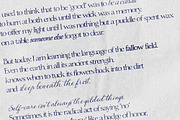 used to think that to be 'good' was to be a candle
to burn at both ends until the wick was a memory,
to offer my light until I was nothing but a puddle of spent wax
on a table someone else forgot to clear.
But today I am learning the language of the fallow field.
Even the earth, in all its ancient strength,
knows when to tuck its flowers back into the dirt
and sleep beneath the frost.
Self-care isn't always the gilded things.
Sometimes it is the radical act of saying 'no'
like a badge of honor,